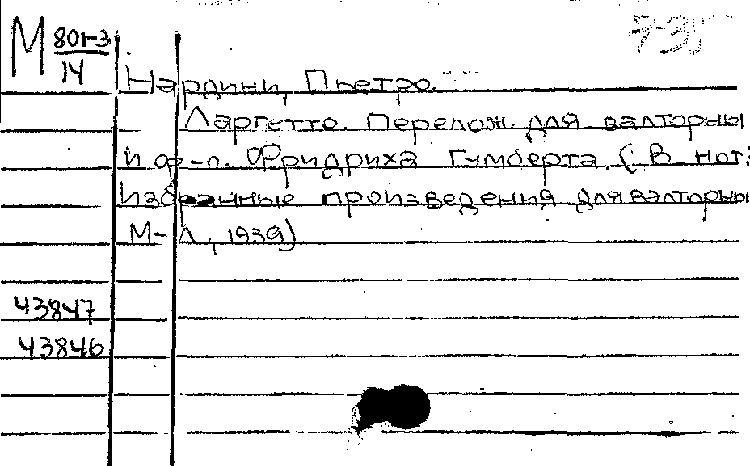 М 801-3
14
Нардини, Пьетро.
Ларгетто. Перелож. для валторны
и ф-п. Фридриха Гумберта. (В нот:
Избранные произведения для валторны
М-Л, 1939)
43847
43846